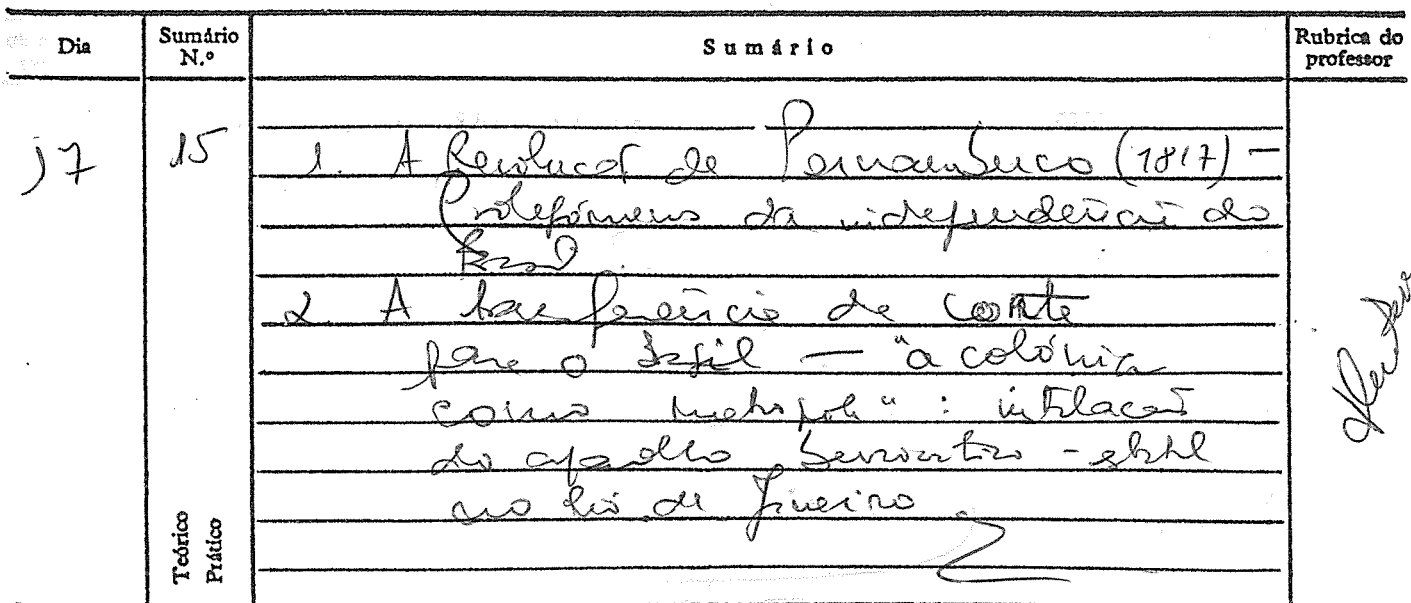 Dia
Sumário N.º
Sumário
Rubrica do professor
17
15
1. A Revolução de Pernambuco (1817) –
Prolegómenos da independência do
Brasil
2. A transferência da corte
para o Brasil — "a colónia
como metrópole": instalação
do aparelho burocrático-estatal
no Rio de Janeiro
Teórico
Prático